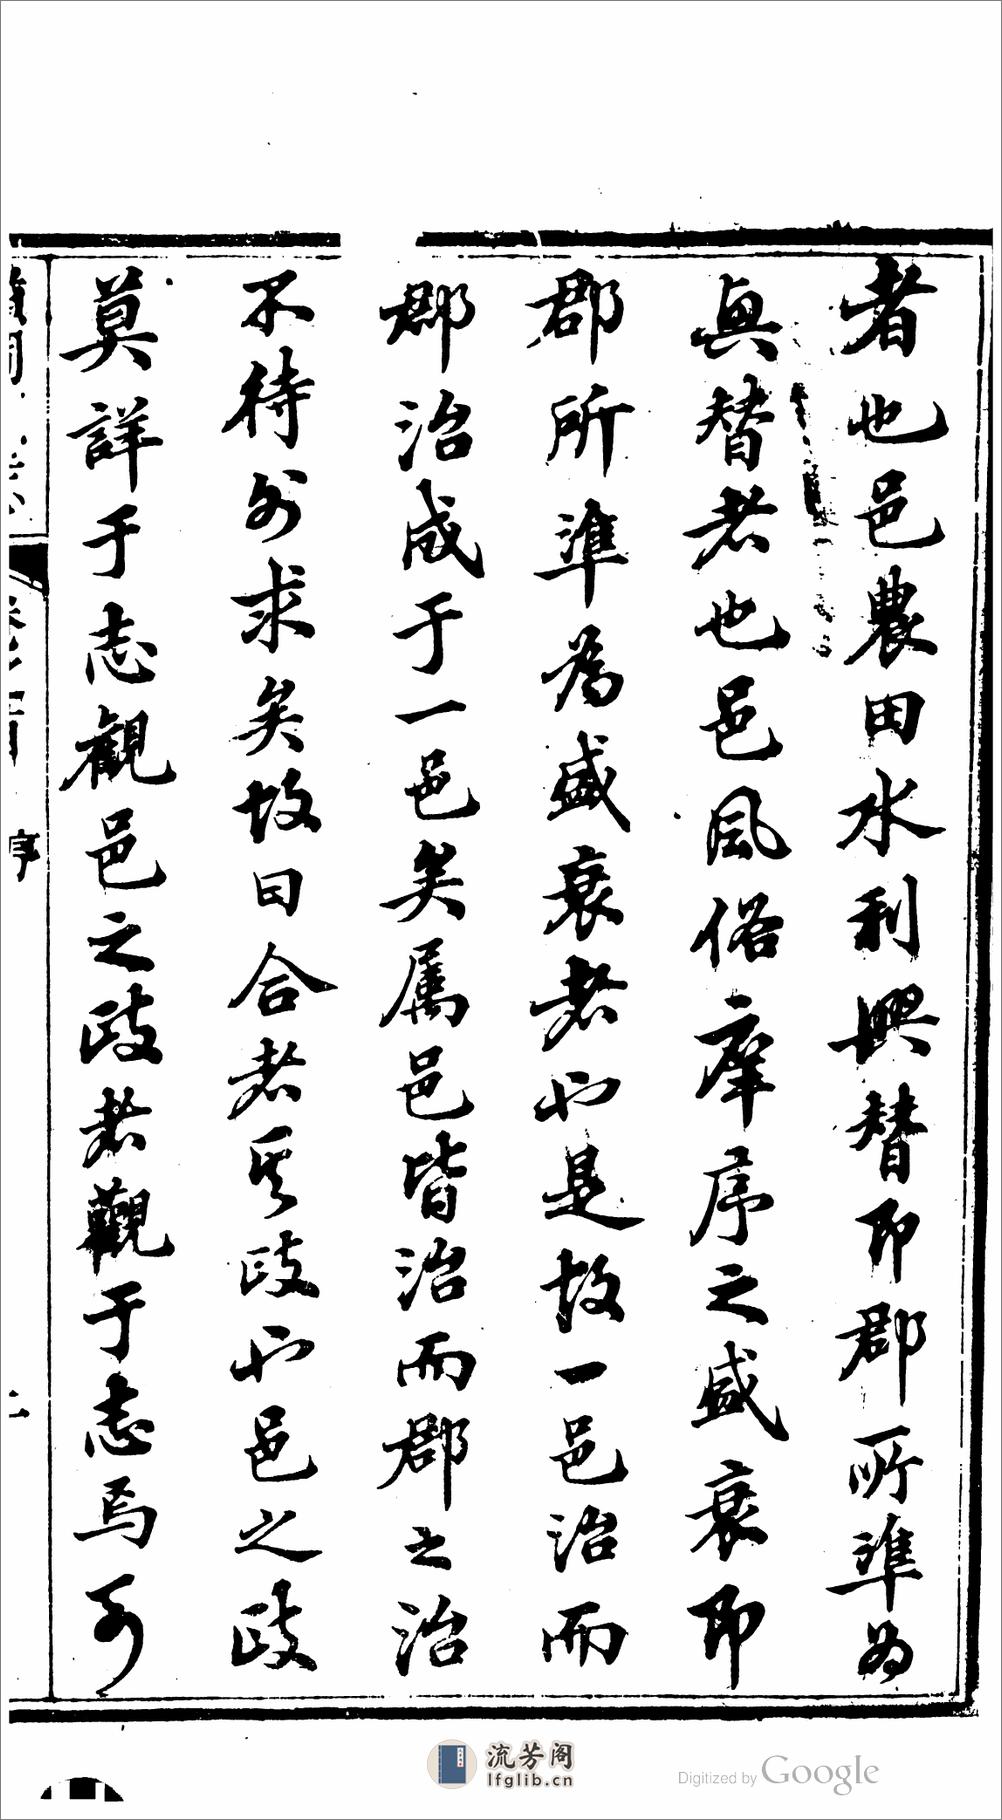 者也邑農田水利興替即郡所準為
興替者也邑風俗庠序之盛衰即
郡所準為盛衰者也是故一邑治而
郡治成于一邑矣属邑皆治而郡之治
不待外求矣故曰合者其政也邑之政
莫詳于志觀邑之政者觀于志焉可
卷之首 序
流芳阁
lfglib.cn
Digitized by Google